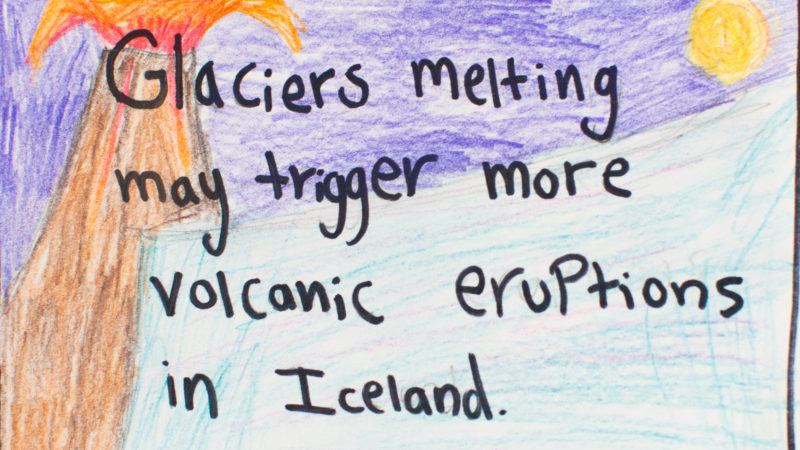 Glaciers melting
may trigger more
volcanic eruptions
in Iceland.